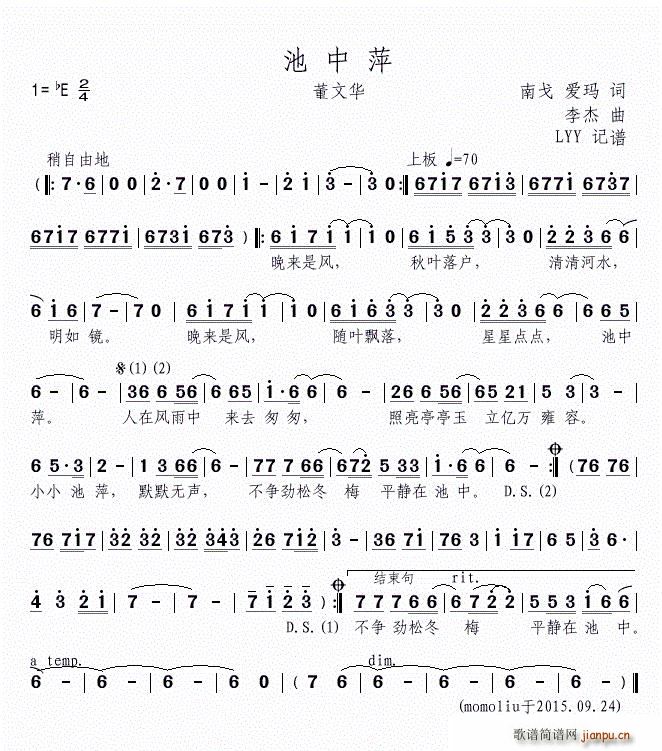 池中萍
1=♭E 2/4
董文华
南戈 爱玛 词
李杰 曲
LYY 记谱
稍自由地
上板 ♩=70
(‖: 7·6 | 0 0 | 2·7 | 0 0 | 1 - | 2 1 | 3 - | 3 0 :‖ 6717 6713 | 6771 6737 |
6717 6771 | 6731 673 ) ‖: 6 1 7 1 1 | 1 0 | 6 1 5 3 3 | 3 0 | 2 2 3 6 6 |
晚来是风， 秋叶落户， 清清河水，
6 1 6 | 7 - | 7 0 | 6 1 7 1 1 | 1 0 | 6 1 6 3 3 | 3 0 | 2 2 3 6 6 | 6 6 5 |
明如 镜。 晚来是风， 随叶飘落， 星星点点， 池中
𝄋(1) (2)
6 - | 6 - | 36 6 56 | 6 65 | 1·6 6 | 6 - | 26 6 56 | 65 21 | 5 3 | 3 - |
萍。 人在风雨中 来去 匆匆， 照亮亭亭玉 立亿万 雍 容。
6 5·3 | 2 - | 1 3 66 | 6 - | 77 7 66 | 672 5 33 | 1·6 6 | 6 - :‖ (76 76 |
小小 池 萍， 默默无声， 不争劲松冬 梅 平静在 池 中。 D.S.(2)
76 717 | 32 32 | 32 343 | 23 17 | 12 61 | 3 - | 36 71 | 763 | 17 17 | 6 5 | 3 6· |
4 3 2 1 | 7 - | 7 - | 7 1 2 3 ) :‖ 7 7 7 6 6 | 6 7 2 2 | 5 5 3 1 6 | 6
结束句 rit.
D.S.(1) 不争 劲松冬 梅 平静在 池 中。
a temp. dim.
6 - | 6 - | 6 - | 6 0 | 7 - | 7 - | 6 - | 6 - | 6 - | 6 - )‖
(momoliu于2015.09.24)
歌谱简谱网
jianpu.cn